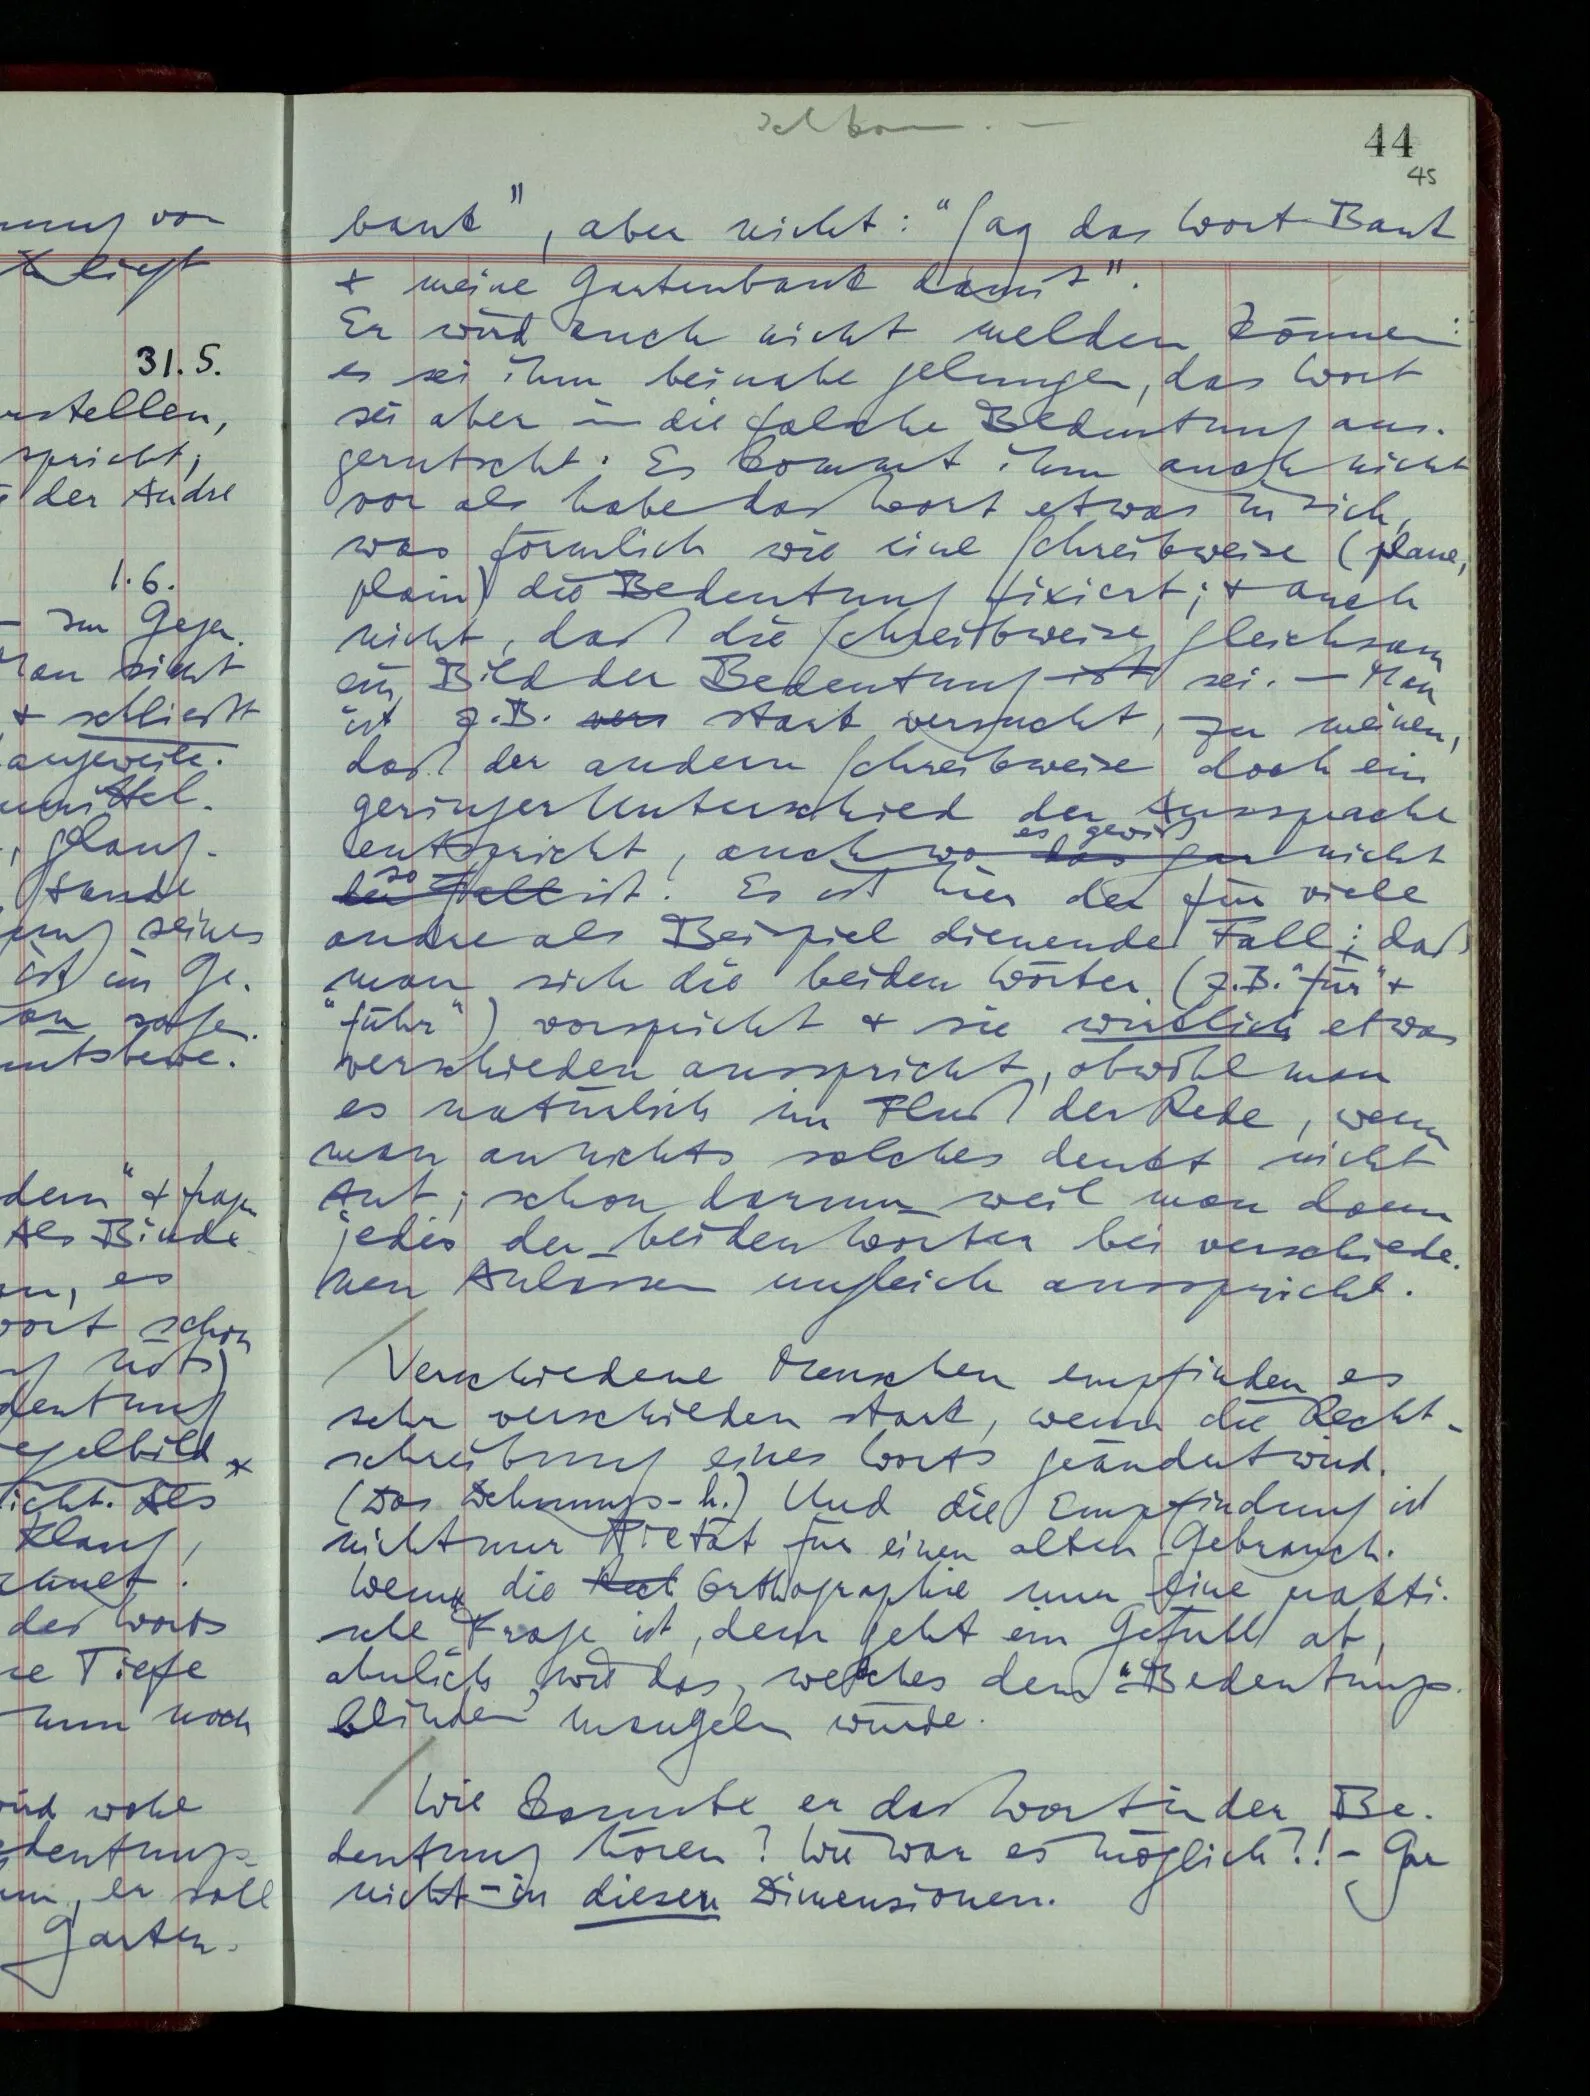 nung von
liegt
31.5.
rstellen,
spricht;
der Andre
1.6.
– Im Gegen-
Man sieht
+ schließt
angeweile.
unmittel-
, glaub-
stande
seines
ist im Ge-
sagen.
untsbewe-
dern" + fragen
Als Binde
en, es
wort schon
deutung
egelbild +
icht. Als
Klang,
chnet.
des Worts
re Tiefe
nun noch
wird wohl
edeutungs-
um, er soll
Garten-
44
45
bank", aber nicht: "Sag das Wort Bank
+ meine Gartenbank damit".
Er wird auch nicht melden können:
es sei ihm beinahe gelungen, das Wort
sei aber in die falsche Bedeutung aus-
gerutscht. Es kommt ihm auch nicht
vor als habe das Wort etwas in sich,
was förmlich wie eine Schreibweise (plane,
plain) die Bedeutung fixiert; + auch
nicht, daß die Schreibweise gleichsam
ein Bild der Bedeutung ist sei. – Man
ist z.B. vers stark versucht, zu meinen,
daß der andern Schreibweise doch ein
geringer Unterschied der Aussprache
entspricht, auch wo das gar es gewiß nicht
der Fall so ist. Es ist hier der für viele
andre als Beispiel dienende Fall: daß
man sich die beiden Wörter (z.B. "für" +
"führ") vorspricht + sie wirklich etwas
verschieden ausspricht, obwohl man
es natürlich im Fluß der Rede, wenn
man an nichts solches denkt nicht
tut; schon darum weil man dann
jedes der beiden Wörter bei verschiede-
nen Anlässen ungleich ausspricht.
Verschiedene Menschen empfinden es
sehr verschieden stark, wenn die Recht-
schreibung eines Worts geändert wird.
(Das Dehnungs-h.) Und die Empfindung ist
nicht nur Pietät für einen alten Gebrauch.
Wem die Rech Orthographie nur eine prakti-
sche Frage ist, dem geht ein Gefühl ab,
ähnlich wie das, welches dem "Bedeutungs-
blinden" mangeln würde.
Wie konnte er das Wort in der Be-
deutung hören? Wie war es möglich?! – Gar
nicht – in diesen Dimensionen.